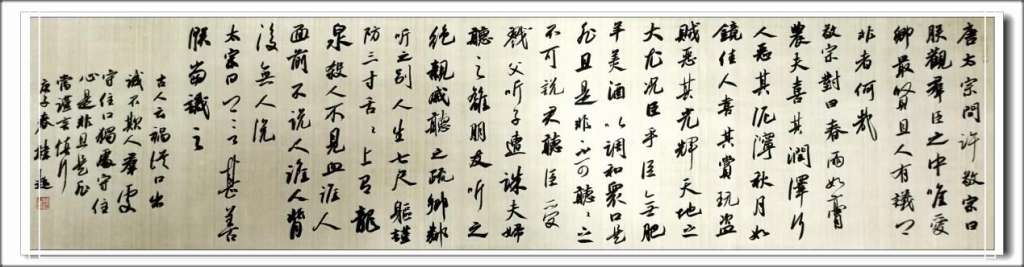 唐太宗問許敬宗曰
朕觀羣臣之中唯愛
卿最賢且人有議卿
非者何哉
敬宗對曰春雨如膏
農夫喜其潤澤行
人惡其泥濘秋月如
鏡佳人喜其賞玩盜
賊惡其光輝天地之
大尤況臣乎臣無肥
羊美酒以調和眾口是
非且是非不可聽聽之
不可說君聽臣受
戮父听子遭誅夫婦
聽之離朋友听之
絕親戚聽之疏鄉鄰
听之別人生七尺軀謹
防三寸舌舌上有龍
泉殺人不見血誰人
面前不說人誰人背
後無人說
太宗曰卿言甚善
朕當識之
古人云禍從口出
誠不欺人羣處
守住口獨處守住
心是非且是非
當謹言慎行
庚子春